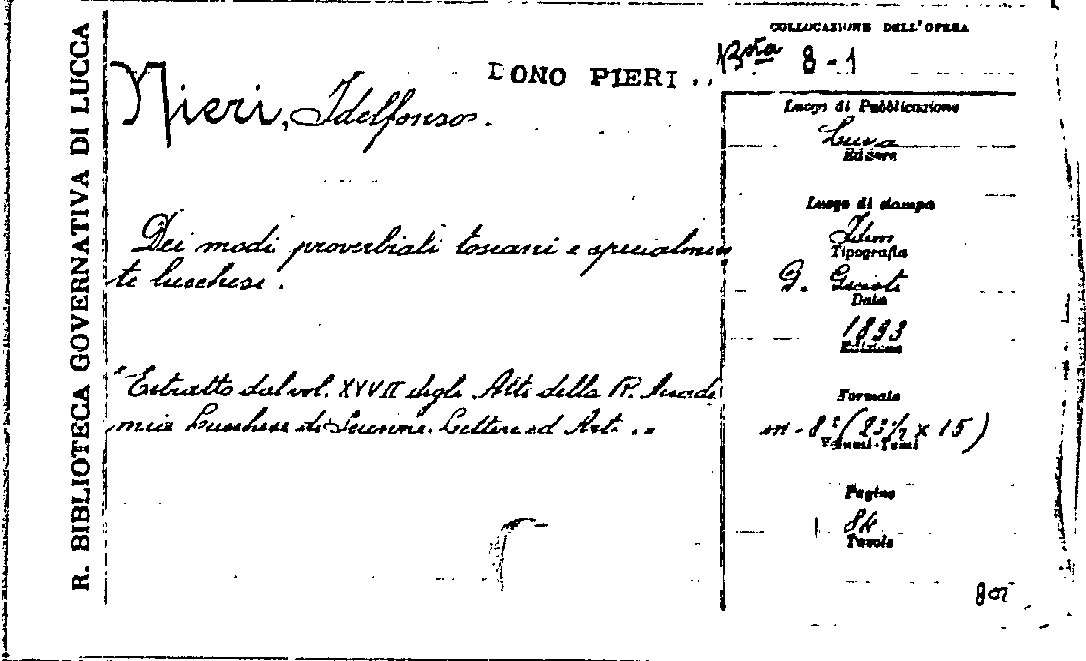 R. BIBLIOTECA GOVERNATIVA DI LUCCA
COLLOCAZIONE DELL'OPERA
Bta 8-1
DONO PIERI..
Nieri, Idelfonso.
Luogo di Pubblicazione
Lucca
Editore
Luogo di stampa
Idem
Tipografia
G. Giusti
Data
1893
Edizione
Formato
m-8° (23½ x 15)
Volumi-Tomi
Pagine
84
Tavole
Dei modi proverbiali toscani e specialmen
te lucchesi.
"Estratto dal vol. XXVII degli Atti della R. Accade
mia Lucchese di Scienze, Lettere ed Arti..